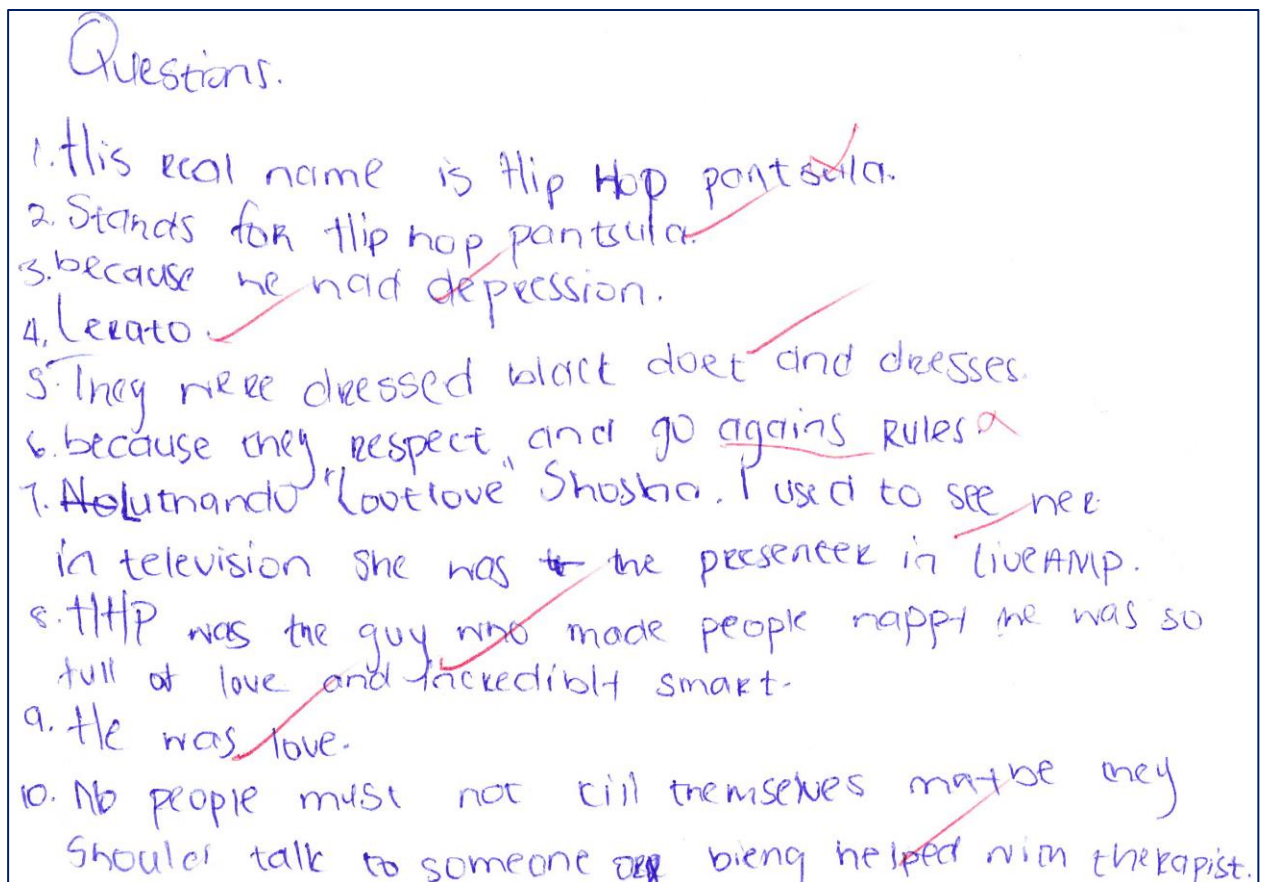 Questions.
1. His real name is Hip Hop pantsula.
2. Stands for Hip hop pantsula.
3. because he had depression.
4. Lerato.
5. They were dressed black doek and dresses.
6. because they respect and go agains Rules
7. Luthando "Lootlove" Shosha. I used to see her
in television she was the presenter in liveAMP.
8. HHP was the guy who made people happy he was so
full of love and incredibly smart.
9. He was love.
10. No people must not kill themselves maybe they
should talk to someone or bieng helped with therapist.